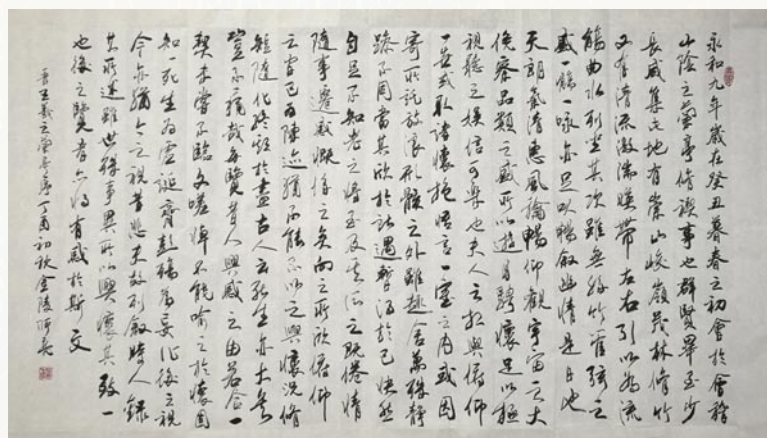 永和九年歲在癸丑暮春之初會於會稽
山陰之蘭亭脩禊事也群賢畢至少
長咸集此地有崇山峻嶺茂林脩竹
又有清流激湍暎帶左右引以為流
觴曲水列坐其次雖無絲竹管弦之
盛一觴一詠亦足以暢敘幽情是日也
天朗氣清惠風和暢仰觀宇宙之大
俯察品類之盛所以遊目騁懷足以極
視聽之娛信可樂也夫人之相與俯仰
一世或取諸懷抱悟言一室之內或因
寄所託放浪形骸之外雖趣舍萬殊靜
躁不同當其欣於所遇暫得於己快然
自足不知老之將至及其所之既倦情
隨事遷感慨係之矣向之所欣俯仰
之間已為陳迹猶不能不以之興懷況脩
短隨化終期於盡古人云死生亦大矣
豈不痛哉每覽昔人興感之由若合一
契未嘗不臨文嗟悼不能喻之於懷固
知一死生為虛誕齊彭殤為妄作後之視
今亦猶今之視昔悲夫故列敘時人錄
其所述雖世殊事異所以興懷其致一
也後之覽者亦將有感於斯文
晉王羲之蘭亭序丁酉初秋金陵